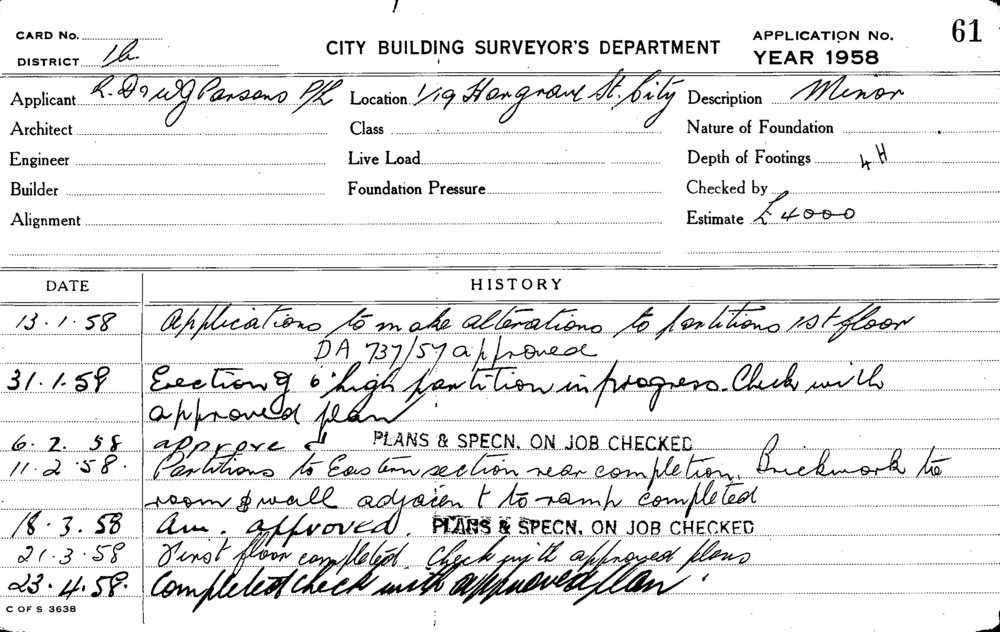 CARD No. CITY BUILDING SURVEYOR'S DEPARTMENT APPLICATION No. 61
DISTRICT YEAR 1958
Applicant Parsons P/L Location 1/19 Hargrave St. City Description Minor
Architect Class Nature of Foundation
Engineer Live Load Depth of Footings 4H
Builder Foundation Pressure Checked by
Alignment Estimate £4000
DATE HISTORY
13.1.58 Applications to make alterations to partitions 1st floor
DA 737/57 approved
31.1.58 Erection of 6' high partition in progress. Check with
approved plan
6.2.58 approved PLANS & SPECN. ON JOB CHECKED
11.2.58. Partitions to Eastern section near completion. Brickwork to
room & wall adjacent to ramp completed
18.3.58 Am. approved. PLANS & SPECN. ON JOB CHECKED
21.3.58 First floor completed. Check with approved plans
23.4.58. Completed check with approved plan.
C OF S 3638